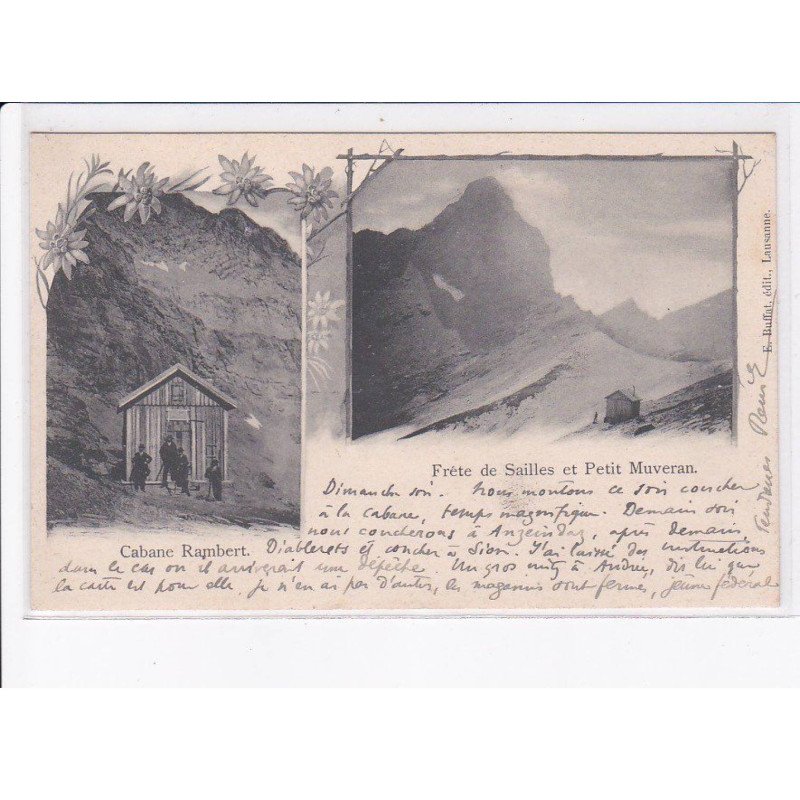 E. Buffat, édit., Lausanne.
Frête de Sailles et Petit Muveran.
Cabane Rambert.
Dimanche soir. Nous montons ce soir coucher
à la cabane, temps magnifique. Demain soir
nous coucherons à Anzeindaz, après demain
Diablerets et coucher à Sion. J'ai laissé des instructions
dans le cas où il arriverait une dépêche. Un gros à Andrée, dis lui que
la carte est pour elle, je n'en ai pas d'autres, les magasins sont fermés, jeûne fédéral
Tendresses